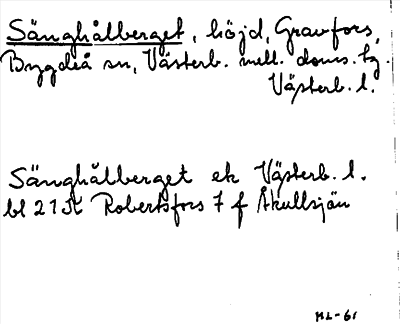 Sänghålberget, höjd, Gravfors,
Bygdeå sn, Västerb. mell. doms. tg.
Västerb. l.
Sänghålberget ek Västerb. l.
bl 21K Robertsfors 7 f Åkullsjön
ML-61